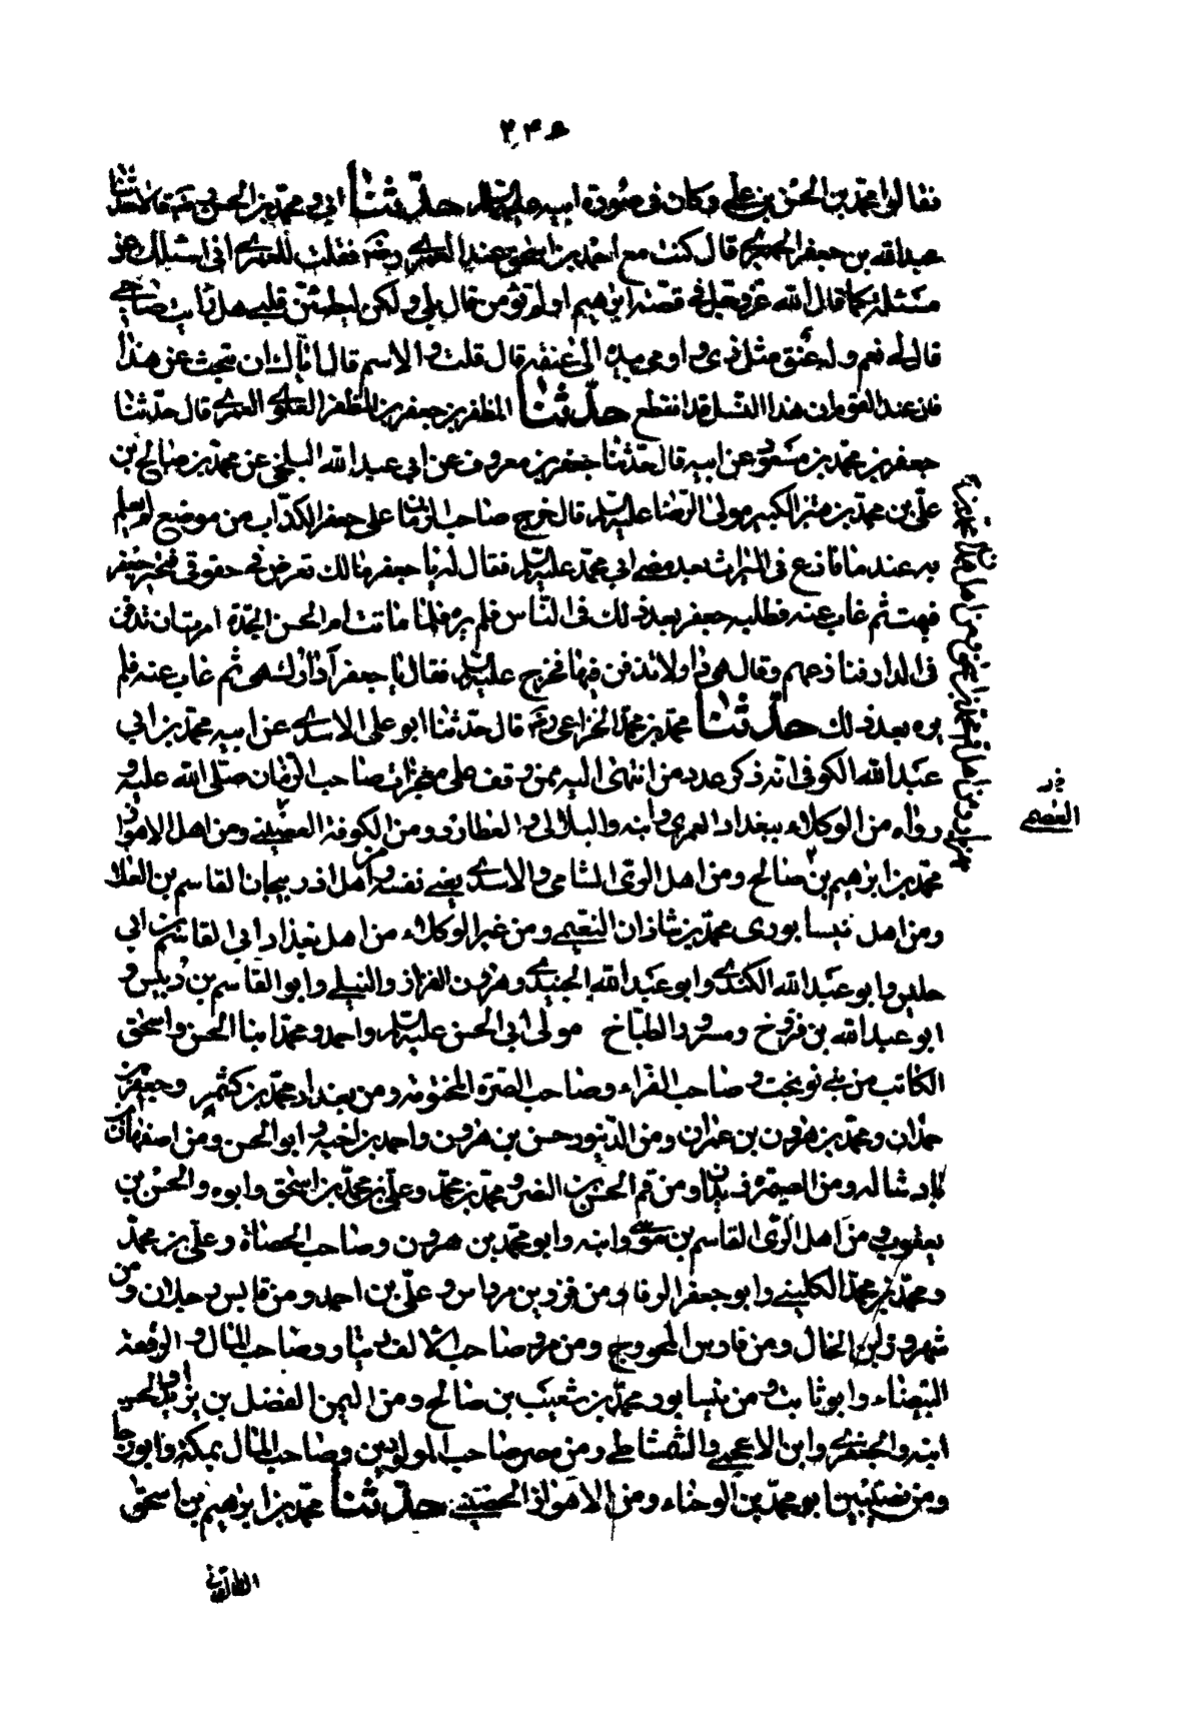 ۲۴۵
فقالوا محمّد بن الحسن بن علي وكان في صورة ابيه عليه السلام حدّثنا ابي ومحمّد بن الحسن رحمهما قالا حدّثنا
عبد الله بن جعفر الحميري قال كنت مع احمد بن اسحق عند العمري رضي فقلت للعمري اني اسئلك عن
مسئلة كما قال الله عزّ وجلّ في قصّة ابرهيم اولم تؤمن قال بلى ولكن ليطمئنّ قلبي هل رأيت صاحبي
قال لي نعم وله عنق مثل ذي واومى بيده الى عنقه قال قلت والاسم قال ايّاك ان تبحث عن هذا
فان عند القوم ان هذا النسل قد انقطع حدّثنا المظفر بن جعفر بن المظفر العلوي العمري قال حدّثنا
جعفر بن محمّد بن مسعود عن ابيه قال حدّثنا جعفر بن معروف عن ابي عبد الله البلخي عن محمّد بن صالح بن
عليّ بن محمّد بن قنبر الكبير مولى الرّضا عليه السلام قال خرج صاحب الزمان على جعفر الكذّاب من موضع لم يعلم
به عند ما نازع في الميراث بعد مضي ابي محمّد عليه السلام فقال له يا جعفر مالك تعرض في حقوقي فتحيّر جعفر
فبهت ثم غاب عنه فطلبه جعفر بعد ذلك في النّاس فلم يره فلمّا ماتت ام الحسن الجدّة امرت ان تدفن
في الدار فنازعهم وقال هي داري لا تدفن فيها فخرج عليه السلام فقال يا جعفر أدارك هي ثم غاب عنه فلم
يره بعد ذلك حدّثنا محمّد بن محمّد الخزاعي رضي قال حدّثنا ابو علي الاسدي عن ابيه محمّد بن ابي
عبد الله الكوفي انّه ذكر عدد من انتهى اليه ممن وقف على معجزات صاحب الزمان صلّى الله عليه و
رواه من الوكلاء ببغداد العمري وابنه والبلالي والعطار ومن الكوفة العاصمي ومن اهل الاهواز
محمّد بن ابرهيم بن صالح ومن اهل الرّي الشامي والاسدي يعني نفسه ومن اهل اذربيجان القاسم بن العلا
ومن اهل نيسابوري محمّد بن شاذان النعيمي ومن غير الوكلاء من اهل بغداد ابي القاسم بن ابي
حليس وابو عبد الله الكندي وابو عبد الله الجنيدي وهرون القزاز والنيلي وابو القاسم بن دبيس و
ابو عبد الله بن فرّوخ ومسرور الطبّاخ مولى ابي الحسن عليه السلام واحمد ومحمّد ابنا الحسن واسحق
الكاتب من بني نوبخت وصاحب الفراء وصاحب الصرّة المختومة ومن بغداد محمّد بن كثمير وجعفر بن
حمدان ومحمّد بن هرون بن عمران ومن الدّينور حسن بن هرون واحمد بن اخيه وابو الحسن ومن اصفهان
بادشاله ومن الصيمرة زيدان ومن قم الحسن بن النضر ومحمّد بن محمّد وعليّ بن محمّد بن اسحق وابوه والحسن بن
يعقوب ومن اهل الرّي القاسم بن موسى وابنه وابو محمّد بن هرون وصاحب الحصاة وعليّ بن محمّد
ومحمّد بن محمّد الكليني وابو جعفر الرفاء ومن قزوين مرداس وعليّ بن احمد ومن قابس رجلان ومن
شهرزور ابن الخال ومن فارس المحروج ومن مرو صاحب الالف دينار وصاحب المال والرقعة
البيضاء وابو ثابت ومن نيسابور محمّد بن شعيب بن صالح ومن اليمن الفضل بن يزيد والحسن
ابنه والجعفري وابن الاعجمي والشمشاطي ومن مصر صاحب المولودين وصاحب المال بمكة وابو رجا
ومن نصيبين ابو محمّد بن الوجناء ومن الاهواز الحصيني حدّثنا محمّد بن ابرهيم بن اسحق
الطالقاني